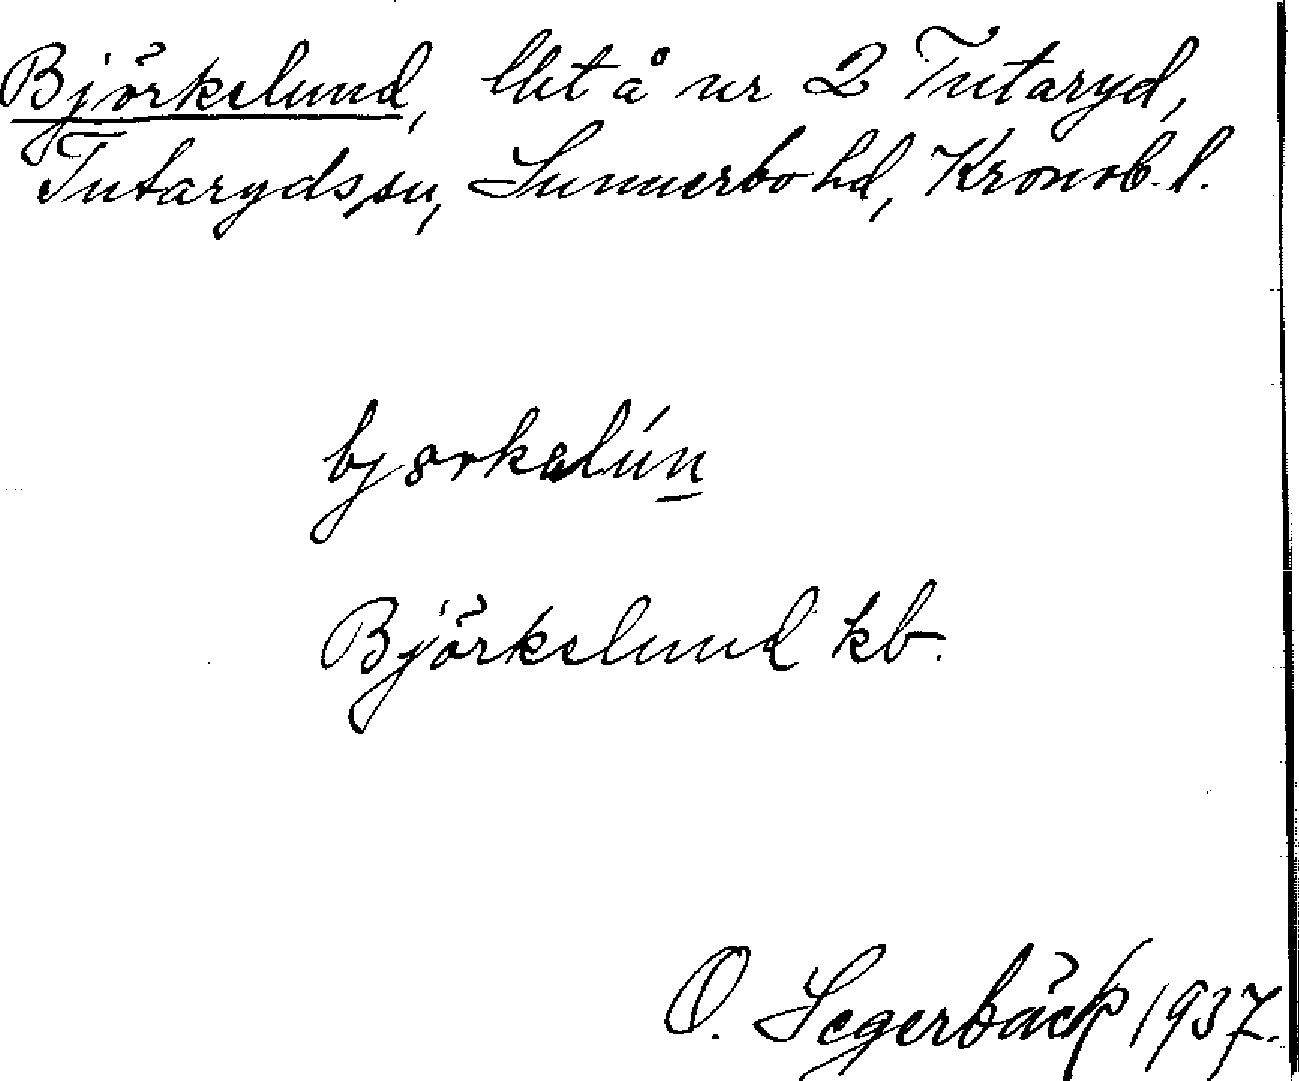 Björkelund, lht å nr 2 Tutaryd,
Tutaryds sn, Sunnerbo hd, Kronob. l.
bjørkalún
Björkelund kb.
O. Segerbäck 1937.